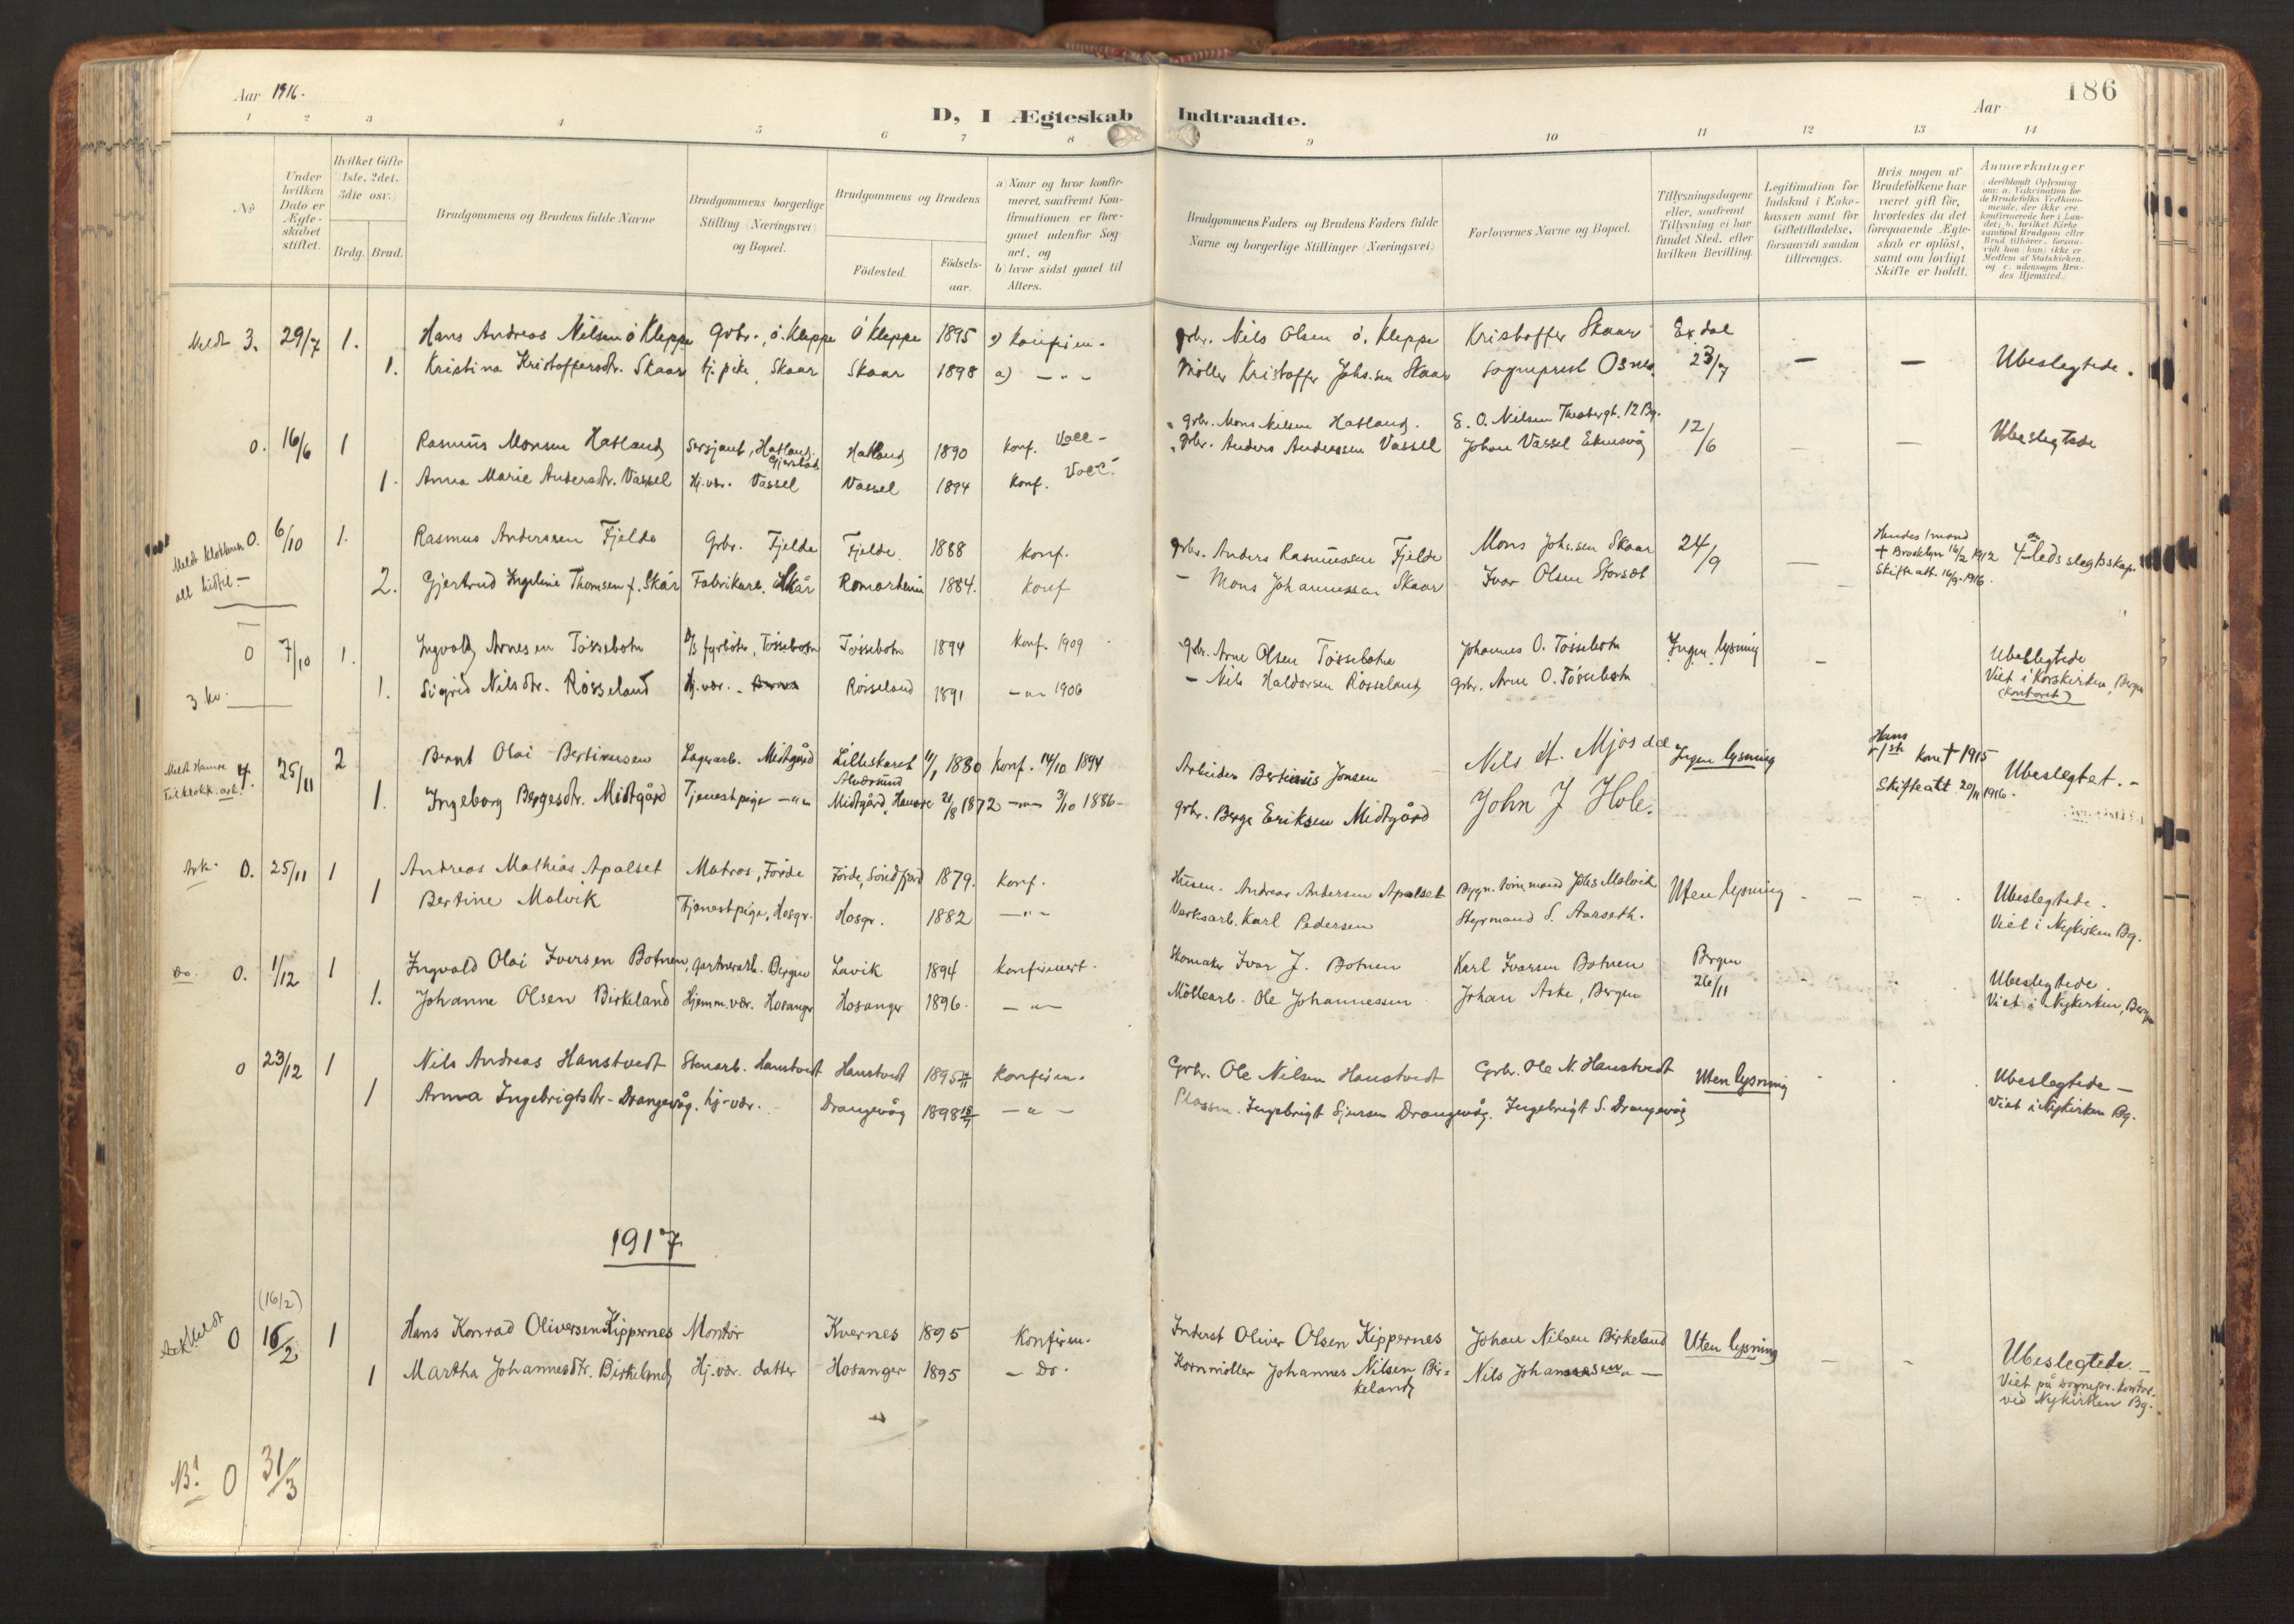 Aar 1916.
D, I Ægteskab Indtraadte.
Aar
186
1 2 3 4 5 6 7 8 9 10 11 12 13 14
No
Under hvilken Dato er Ægteskabet stiftet.
Hvilket Gifte (1ste, 2det, 3die osv.)
Brdg. Brud.
Brudgommens og Brudens fulde Navne
Brudgommens borgerlige Stilling (Næringsvei) og Bopæl.
Brudgommens og Brudens
Födested.
Födsels-aar.
a) Naar og hvor konfirmeret, saafremt Konfirmationen er foregaaet udenfor Sognet, og
b) hvor sidst gaaet til Alters.
Brudgommens Faders og Brudens Faders fulde Navne og borgerlige Stillinger (Næringsvei)
Forlovernes Navne og Bopæl.
Tillysningsdagene eller, saafremt Tillysning ei har fundet Sted, efter hvilken Bevilling.
Legitimation for Indskud i Enkekassen samt for Giftetilladelse, forsaavidt saadan tiltrænges.
Hvis nogen af Brudefolkene har været gift för, hvorledes da det foregaaende Ægteskab er oplöst, samt om lovligt Skifte er holdt.
Anmærkninger (deriblandt Oplysning om: a. Vakcination for de Brudefolks Vedkommende, der ikke ere konfirmerede her i Landet; b. hvilket Kirkesamfund Brudgom eller Brud tilhörer, forsaavidt han (hun) ikke er Medlem af Statskirken, og c. udensogns Brudes Hjemsted.)
Meldt 3. 29/7 1. Hans Andreas Nilsen ö Kleppe Gbr., ö. Kleppe ö Kleppe 1895 a) Konfirm. gbr. Nils Olsen ö. Kleppe Kristoffer Skaar Exdal
1. Kristina Kristoffersdtr. Skaar tj. pike, Skaar Skaar 1898 a) — " — Möller Kristoffer Johs.sen Skaar Sogneprest Osnes. 23/7 — — Ubeslegtede.
0. 16/6 1 Rasmus Monsen Hatland Sersjant, Hatland. Hatland 1890 Konf. Voll - gbr. Mons Nilsen Hatland. E. O. Nilsen Theatergt. 12 Bg. 12/6 — — Ubeslegtede
1. Anna Marie Andersdtr. Vassel Hj.vær. Vassel Vassel 1894 Konf. gbr. Anders Anderssen Vassel Johan Vassel
0. 6/10 1. Rasmus Anderssen Fjelde Gbr. Fjelde Fjelde 1888 Konf. gbr. Anders Rasmussen Fjelde Mons Johs.sen Skaar 24/9 — Hendes 1 mand + Brooklyn 16/2 1912 Skifteatt. 16/9 1916. 4 Leds slegtskap.
2. Gjertrud Ingeline Thomsen f. Skår Fabrikarb. Skår Romarheim 1884. Konf — Mons Johannessen Skaar Ivar Olsen
0 7/10 1. Ingvald Arnesen Tössebotn D/S fyrböter, Tössebotn Tössebotn 1894 Konf. 1909 gbr. Arne Olsen Tössebotn Johannes O. Tössebotn Ingen lysning — Ubeslegtede
3 kv. 1. Sigrid Nilsdtr. Rösseland Hj.vær. Rösseland 1891 — " — 1906 — Nils Haldorsen Rösseland gbr. Arne O. Tössebotn Viet i Korskirken, Bergen (Kontoret)
4. 25/11 2 Bernt Olai Bertinusen Lagerarb. Midtgård Lilleskaret Alversund 1880 Konf. 14/10 1894 Arbeider Bertinius Jonsen Nils M. Mjösdal Ingen lysning Hans 1ste kone + 1915 Skifteatt 20/11 1916. Ubeslegtet. -
1. Ingeborg Bergesdtr. Midtgård Tjenestpige — " — Midtgård, Hamre 21/8 1872 — " — 3/10 1886 - gbr. Berge Eriksen Midtgård John J Hole.
Ark. 0. 25/11 1 Andreas Mathias Apalset Matros, Förde Förde, Söndfjord 1879. Konf. Husm. Andreas Andersen Apalset Bygn. tömmermand Johs Molvik Uten lysning - - - Ubeslegtede.
1 Bertine Molvik Tjenestpige, Hosgr. Hosgr. 1882 — " — Verksarb. Karl Pedersen Styrmand S. Aarseth. Viet i Nykirken Bg.
Do. 0. 1/12 1 Ingvald Olai Iversen Botnen Gartnerarb. Bergen Lavik 1894 Konfirmert. Skomaker Ivar J. Botnen Karl Ivarsen Botnen Bergen 26/11 Ubeslegtede.
1. Johanne Olsen Birkeland Hjemm.vær. Hosanger Hosanger 1896. — " — Möllearb. Ole Johannessen Johan Aske, Bergen Viet i Nykirken, Bergen
0 23/12 1 Nils Andreas Hanstvedt Stenarb. Hanstvedt Hanstvedt 1895 Konfirm. Gbr. Ole Nilsen Hanstvedt Gbr. Ole N. Hanstvedt Uten lysning Ubeslegtede —
1 Anna Ingebrigtsdtr. Drangevåg. hj.vær. Drangevåg 1898 — " — Plassm. Ingebrigt Sjursen Drangevåg. Ingebrigt S. Drangevåg Viet i Nykirken Bg.
1917
(16/2)
Meldt Ark 0 16/2 1 Hans Konrad Oliversen Kippernes Montör Kvernes 1895 Konfirm. Inderst Oliver Olsen Kippernes Johan Nilsen Birkeland Uten lysning — - Ubeslegtede. -
1 Martha Johannesdtr. Birkeland Hj.vær. datter Hosanger 1895 — Do. Kornmöller Johannes Nilsen Birkeland Nils Johannessen — " — Viet på sognepr. kontor ved Nykirken Bg.
N.B! 0 31/3